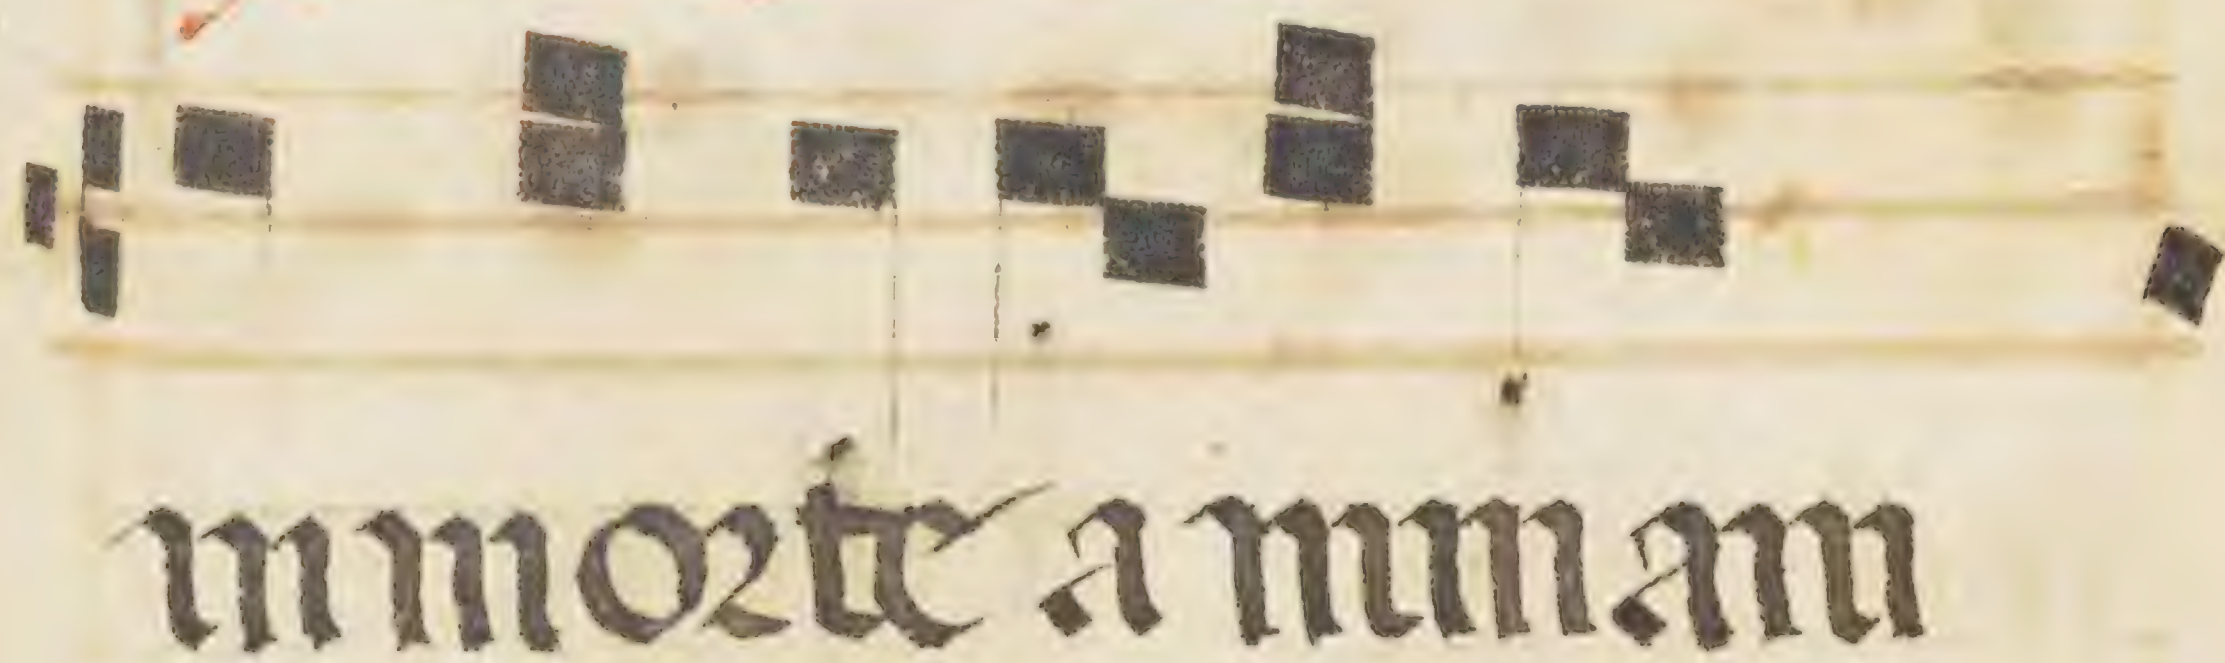 in morte animam